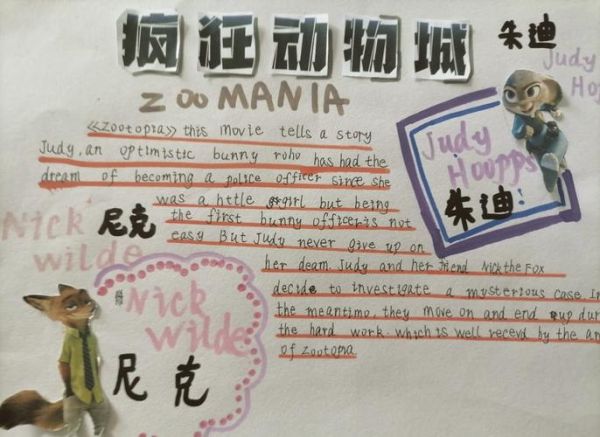 疯狂动物城
朱迪
Judy
Hop
ZOOMANIA
《Zootopia》this movie tells a story
Judy, an optimistic bunny roho has had the
dream of becoming a police officer since she
was a httle girl but being
the first bunny officeris not
easy But Judy never give up on
her deam. Judy and her friend Nick the Fox
decide to investigate a mysterious case. In
the meantimo, they move on and end up dur
the hard work. which is well recevd by the an
of zootopia
Judy
Houpps
朱迪!
Nick
尼克
wilde
Nick
wilde
尼克